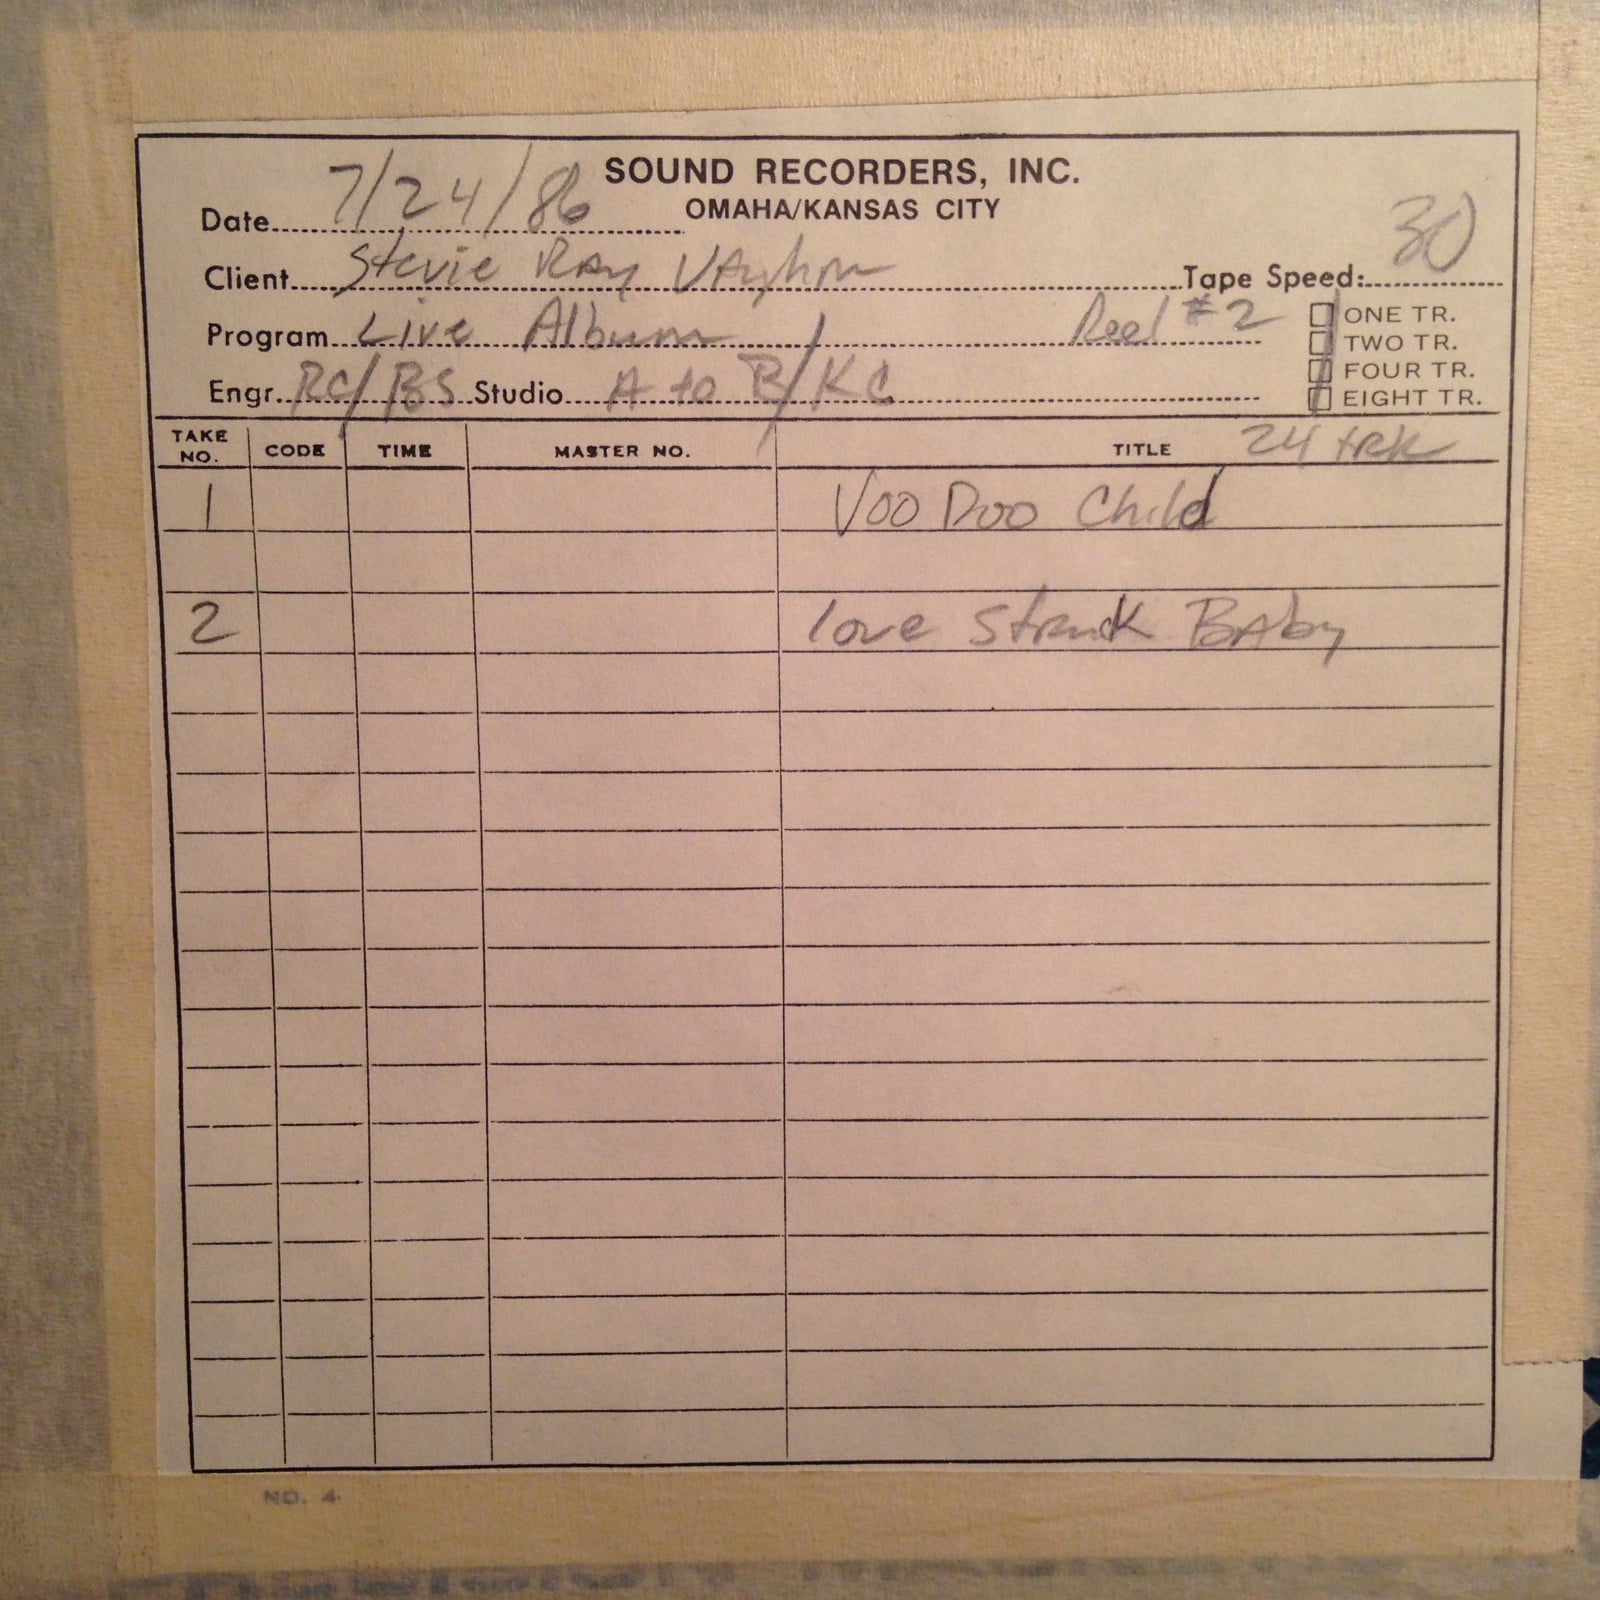 SOUND RECORDERS, INC.
OMAHA/KANSAS CITY
Date 7/24/86
Client Stevie Ray Vaughn Tape Speed: 30
Program Live Album Reel #2
ONE TR.
TWO TR.
FOUR TR.
EIGHT TR.
Engr. RC/BS Studio A to B/KC
24 trk
TAKE NO. CODE TIME MASTER NO. TITLE
1 Voo Doo Child
2 love Struck Baby
NO. 4